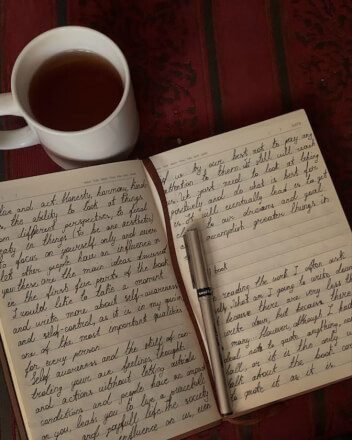 value and act. Honesty, harmony, hard
the ability to look at things
from different perspectives, to find
beauty in things (to be an aesthete)
to focus on yourself only and never
let other people have an influence on
you these are the main ideas discussed
in the first five points of the book.
I would like to take a moment
and write more about self-awareness
and self-control, as it is in my opinion
one of the most important qualities
for every person.
Self awareness and the skill of con-
trolling your own feelings, thoughts
and actions without letting outside
conditions and people have an impact
on you, leads you to live a peaceful
and joyful life. The society
influence on us, even
if we try our best not to pay any
attention to them it still will
us. We just need to look at things
positively and do what is best for
us. It will eventually lead us to get
closer to our dreams and goals,
and accomplish greater things in
book
reading the work I often ask
What am I going to write down?
because there are very less things
write down, but because there
many. However, although I have
want to quote anything,
it is the only
talk about the book
to quote it as it is